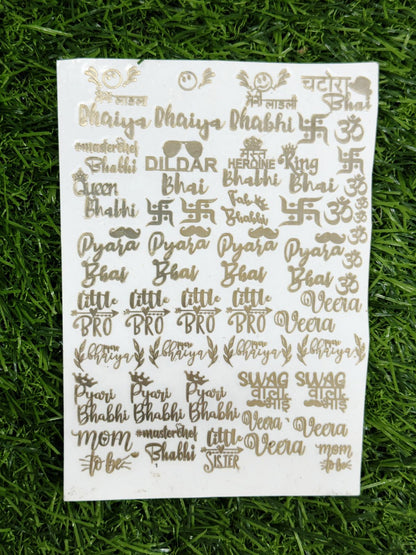 मेरी लाडली मेरी लाडली चटोरा
Bhaiya Bhaiya Bhabhi Bhai
卐 ॐ
#masterchef DILDAR HEROINE King 卐
Bhabhi Bhai Bhabhi Bhai ॐ
Queen Fab Bhabhi 卐 卐 卐 ॐ
Bhabhi ॐ
Pyara Pyara Pyara Pyara ॐ
Bhai Bhai Bhai Bhai ॐ
little little little little Veera
BRO BRO BRO BRO Veera
bhaiya bhaiya bhaiya bhaiya
Pyari Pyari Pyari SWAG SWAG
Bhabhi Bhabhi Bhabhi वाला भाई वाला भाई
Veera Veera
mom #masterchef little Veera mom
to be Bhabhi SISTER to be